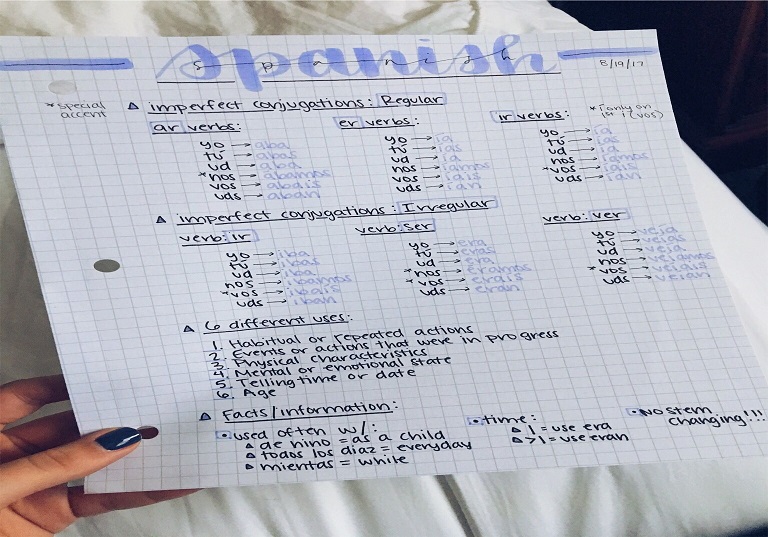 spanish
s p a n i s h
8/19/17
*special accent
△ imperfect conjugations: Regular
*i only on 1st i (vos)
ar verbs:
yo → aba
tú → abas
ud → aba
*nos → abamos
vos → abais
uds → aban
er verbs:
yo → ia
tú → ias
ud → ia
nos → iamos
vos → iais
uds → ian
ir verbs:
yo → ia
tú → ias
ud → ia
nos → iamos
*vos → iais
uds → ian
△ imperfect conjugations: Irregular
verb: ir
yo → iba
tú → ibas
ud → iba
nos → ibamos
*vos → ibais
uds → iban
verb: ser
yo → era
tú → eras
ud → era
*nos → eramos
*vos → erais
uds → eran
verb: ver
yo → veia
tú → veias
ud → veia
nos → veiamos
*vos → veiais
uds → veian
△ 6 different uses:
1. Habitual or repeated actions
2. Events or actions that were in progress
3. Physical characteristics
4. Mental or emotional state
5. Telling time or date
6. Age
△ Facts/information:
• used often w/:
△ de nino = as a child
△ todos los diaz = everyday
▷ mientas = while
• time:
△ 1 = use era
△ >1 = use eran
• No stem changing!!!